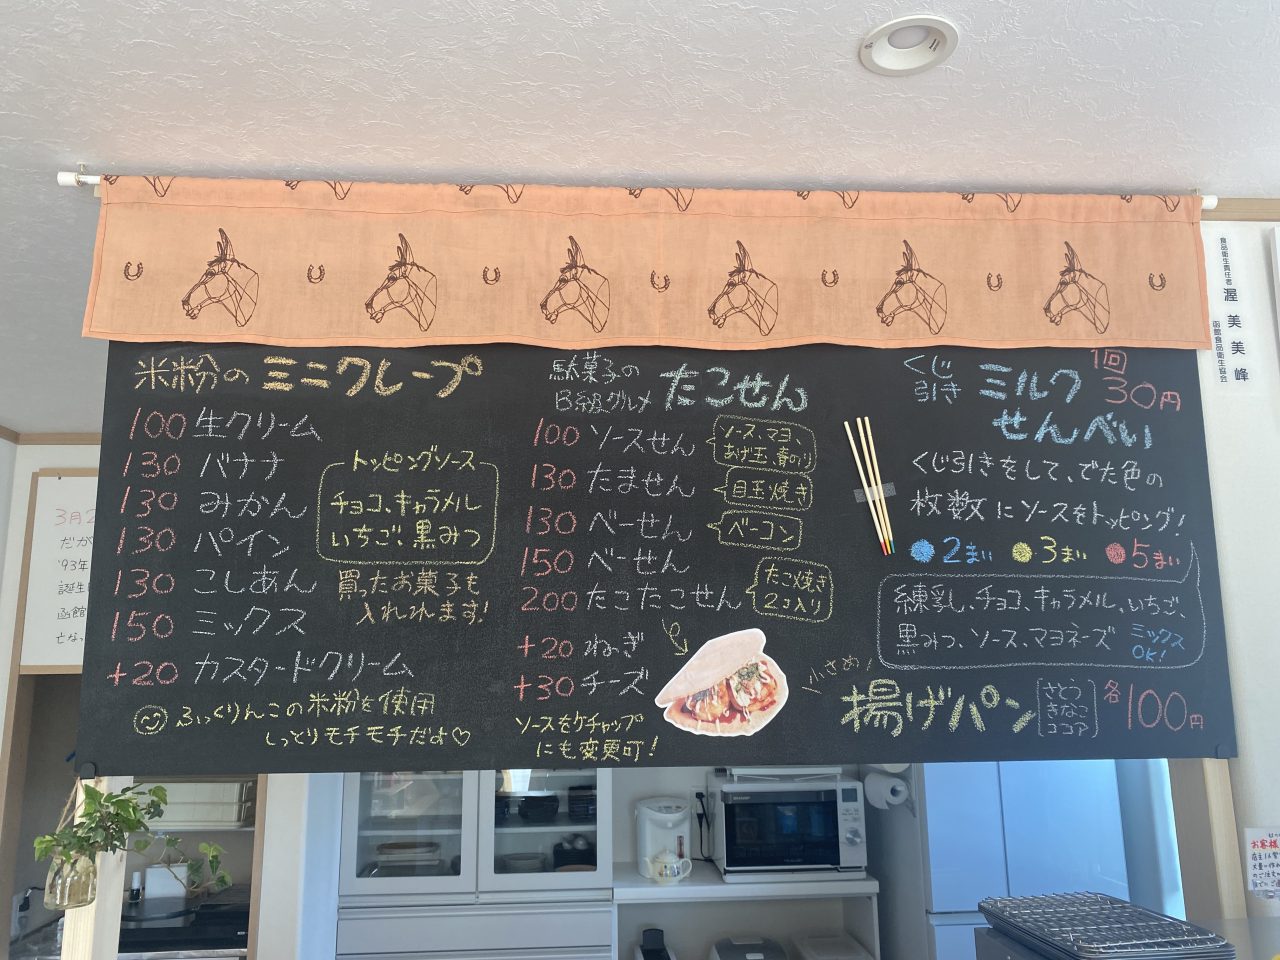 米粉の ミニクレープ
100 生クリーム
130 バナナ
130 みかん
130 パイン
130 こしあん
150 ミックス
+20 カスタードクリーム
トッピングソース
チョコ、キャラメル
いちご、黒みつ
買ったお菓子も
入れれます!
ふっくりんこの米粉を使用
しっとりモチモチだよ♡
駄菓子の
B級グルメ
たこせん
100 ソースせん
ソース、マヨ、
あげ玉、青のり
130 たません
目玉焼き
130 べーせん
ベーコン
150 べーせん
200 たこたこせん
たこ焼き
2コ入り
+20 ねぎ
+30 チーズ
ソースをケチャップ
にも変更可!
くじ
引き
ミルク
せんべい
1回
30円
くじ引きをして、でた色の
枚数にソースをトッピング!
2まい 3まい 5まい
練乳、チョコ、キャラメル、いちご、
黒みつ、ソース、マヨネーズ
ミックス
OK!
小さめ!
揚げパン
さとう
きなこ
ココア
各100円
食品衛生責任者
渥美美峰
函館食品衛生協会
3月2
だが
'93年
誕生
函館
亡な
SHARP
お客様